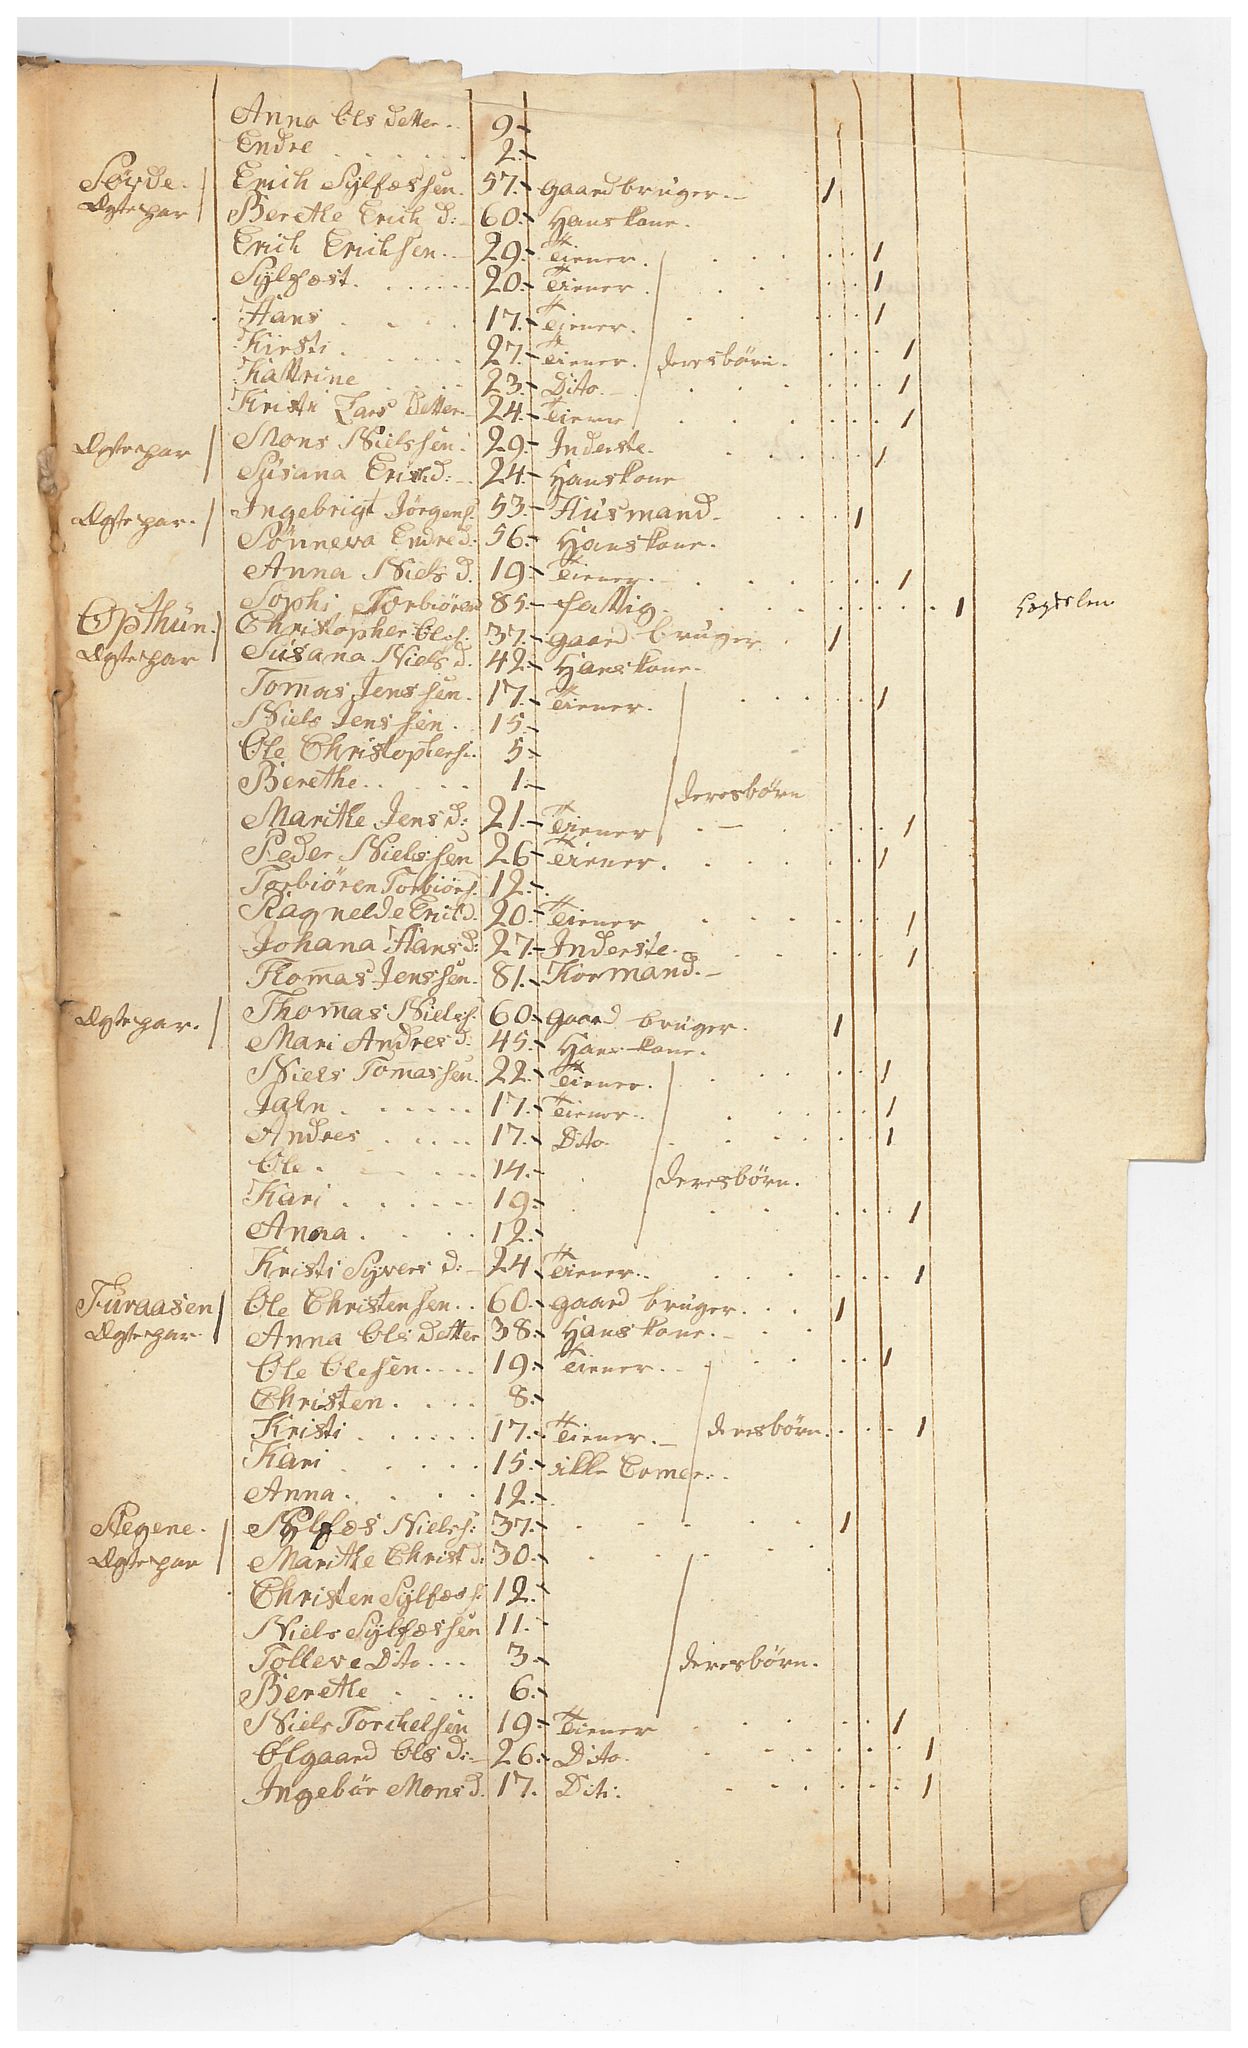 Anna Ols Detter.. 9.-
Endre ...... 2.-
Sørde. Erich Sylfæssen. 57.- gaardbruger.- 1
Ægtepar Berethe Erich d:- 60.- Hans kone.
Erich Erichsen.- 29.- Tiener. . . . . . 1
Sylfæst. ..... 20.- Tiener. . . . . 1
Hans . . . . 17.- Tiener. . . . . . 1
Kirsti . . . . . 27.- Tiener. deresbörn. . . . 1
Kattrine . . . . 23.- Dito.- . . . . . . 1
Kristi Lars Detter- 24.- Tiener . . . . . . 1
Ægtepar Mons Nielssen. 29.- Inderste. . . . . . 1
Susana Erich d:-. 24.- Hans kone
Ægtepar. Ingebrigt Jörgens. 53.- Husmand- . . . 1
Sönneva Endre d: 56.- Hans kone.
Anna Niels d. 19.- Tiener.- . . . . . . 1
Sophi Torbiören 85.- fattig. . . . . . . . 1
Opthun. Christopher Oles: 37.- gaard bruger. . 1
Ægtepar Susana Niels d. 42.- Hans kone.
Tomas Jenssen. 17.- Tiener. . . . . . 1
Niels Jenssen . 15.-
Ole Christophers:. 5.-
Berethe. . . . . 1.- deresbörn
Marithe Jens d: 21.- Tiener . - . . . . 1
Peder Nielssen 26- Tiener. . . . . . 1
Torbiören Torbiörs. 12.-.
Ragnelde Erich d. 20.- Tiener . . . . . . 1
Johana Hans d: 27.- Inderste. . . . . . 1
Thomas Jenssen. 81.- Kormand.-
Ægtepar. Thomas Nielss. 60.- gaard bruger. 1
Mari Andres d: 45.- Hans kone.
Niels Tomassen. 22.- Tiener. . . . . . 1
Jahn . . . . . . 17.- Tiener.. . . . . . 1
Andres . . . . . 17.- Dito. . . . . . . 1
Ole . . . . . 14.- deresbörn.
Kari . . . . . . 19.- . . . . . . 1
Anna. . . . . 12.-
Kristi Syvers d:- 24 Tiener.. . . . . . 1
Furaasen Ole Christensen.. 60.- gaard bruger. . . 1
Ægtepar. Anna Ols Detter 38.- Hans kone.- . .
Ole Olesen.... 19.- Tiener. . . . . . . 1
Christen. . . . . 8.-
Kristi . . . . . . 17.- Tiener.- deresbörn. . . . 1
Kari . . . . . 15.- ikke Comer..
Anna. . . . . 12.-.
Stegene. Sylfæs Nielss: 37.- . . . . . 1
Ægtepar Marithe Christ d: 30.- . . . . .
Christen Sylfæss: 12.-
Niels Sylfæssen 11.-
Tolleve Dito... 3.- deresbörn.
Berethe . . . . 6.-
Niels Torchelsen 19.- Tiener . . . . . . 1
Olgaard Ols d:- 26.- Dito. . . . . . . 1
Ingebör Mons d. 17. Dito: . . . . . . 1